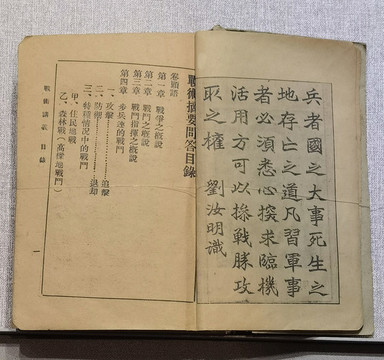 兵者國之大事死生之
地存亡之道凡習軍事
者必須悉心探求臨機
活用方可以操戰勝攻
取之權 劉汝明識
戰術摘要問答目錄
卷頭語
第一章 戰爭之概說
第二章 戰鬥之概說
第三章 戰鬥指揮之概說
第四章 步兵連的戰鬥
一、攻擊………追擊
二、防禦………退却
三、特種情況中的戰鬥
甲、住民地戰
乙、森林戰(高樑地戰鬥)
戰術 目錄 一